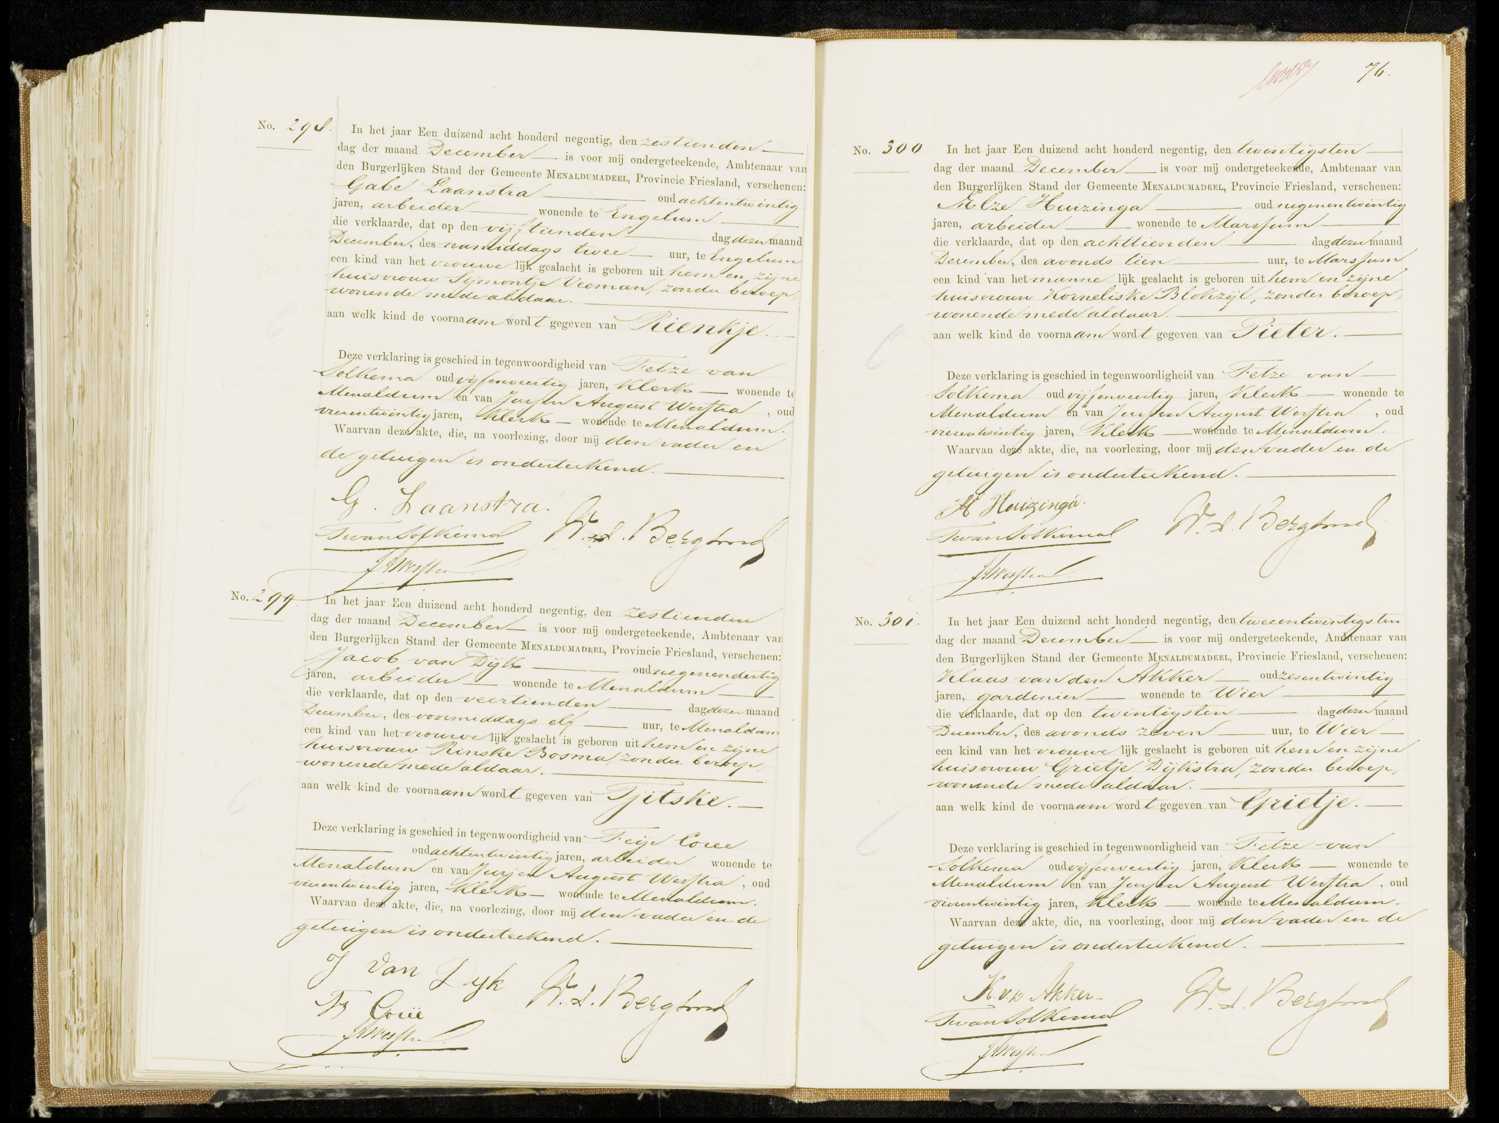 No. 298. In het jaar Een duizend acht honderd negentig, den zestienden
dag der maand December is voor mij ondergeteekende, Ambtenaar van
den Burgerlijken Stand der Gemeente MENALDUMADEEL, Provincie Friesland, verschenen:
Gabe Laanstra oud achtentwintig
jaren, arbeider wonende te Engelum
die verklaarde, dat op den vijftienden dag dezer maand
December, des namiddags twee uur, te Engelum
een kind van het vrouwelijk geslacht is geboren uit hem en zijne
huisvrouw Sijmontje Vroman, zonder beroep,
wonende mede aldaar.
aan welk kind de voornaam wordt gegeven van Rienkje.
Deze verklaring is geschied in tegenwoordigheid van Fetze van
Solkema oud vijfenveertig jaren, Klerk wonende te
Menaldum en van Jurjen August Werstra, oud
vierentwintig jaren, Klerk wonende te Menaldum.
Waarvan deze akte, die, na voorlezing, door mij den vader en
de getuigen is onderteekend.
G. Laanstra.
F van Solkema W. L. Berghuis
No. 299 In het jaar Een duizend acht honderd negentig, den zestienden
dag der maand December is voor mij ondergeteekende, Ambtenaar van
den Burgerlijken Stand der Gemeente MENALDUMADEEL, Provincie Friesland, verschenen:
Jacob van Dijk oud negenendertig
jaren, arbeider wonende te Menaldum
die verklaarde, dat op den veertienden dag dezer maand
December, des voormiddags elf uur, te Menaldum
een kind van het vrouwelijk geslacht is geboren uit hem en zijne
huisvrouw Rinske Bosma, zonder beroep,
wonende mede aldaar.
aan welk kind de voornaam wordt gegeven van Tjitske.
Deze verklaring is geschied in tegenwoordigheid van Feije Coree
oud achtentwintig jaren, arbeider wonende te
Menaldum en van Jurjen August Werstra, oud
vierentwintig jaren, Klerk wonende te Menaldum.
Waarvan deze akte, die, na voorlezing, door mij den vader en de
getuigen is onderteekend.
J van Dyk W. L. Berghuis
76.
No. 300 In het jaar Een duizend acht honderd negentig, den twintigsten
dag der maand December is voor mij ondergeteekende, Ambtenaar van
den Burgerlijken Stand der Gemeente MENALDUMADEEL, Provincie Friesland, verschenen:
Melze Huizinga oud negenentwintig
jaren, arbeider wonende te Marssum
die verklaarde, dat op den achttienden dag dezer maand
December, des avonds tien uur, te Marssum
een kind van het mannelijk geslacht is geboren uit hem en zijne
huisvrouw Korneliske Blokzijl, zonder beroep,
wonende mede aldaar.
aan welk kind de voornaam wordt gegeven van Pieter.
Deze verklaring is geschied in tegenwoordigheid van Fetze van
Solkema oud vijfenveertig jaren, Klerk wonende te
Menaldum en van Jurjen August Werstra, oud
vierentwintig jaren, Klerk wonende te Menaldum.
Waarvan deze akte, die, na voorlezing, door mij den vader en de
getuigen is onderteekend.
M Huizinga
F van Solkema W. L. Berghuis
No. 301. In het jaar Een duizend acht honderd negentig, den tweeentwintigsten
dag der maand December is voor mij ondergeteekende, Ambtenaar van
den Burgerlijken Stand der Gemeente MENALDUMADEEL, Provincie Friesland, verschenen:
Klaas van den Akker oud zesentwintig
jaren, gardenier wonende te Wier
die verklaarde, dat op den twintigsten dag dezer maand
December, des avonds zeven uur, te Wier
een kind van het vrouwelijk geslacht is geboren uit hem en zijne
huisvrouw Grietje Dijkstra, zonder beroep,
wonende mede aldaar.
aan welk kind de voornaam wordt gegeven van Grietje.
Deze verklaring is geschied in tegenwoordigheid van Fetze van
Solkema oud vijfenveertig jaren, Klerk wonende te
Menaldum en van Jurjen August Werstra, oud
vierentwintig jaren, Klerk wonende te Menaldum.
Waarvan deze akte, die, na voorlezing, door mij den vader en de
getuigen is onderteekend.
K v d Akker
F van Solkema W. L. Berghuis